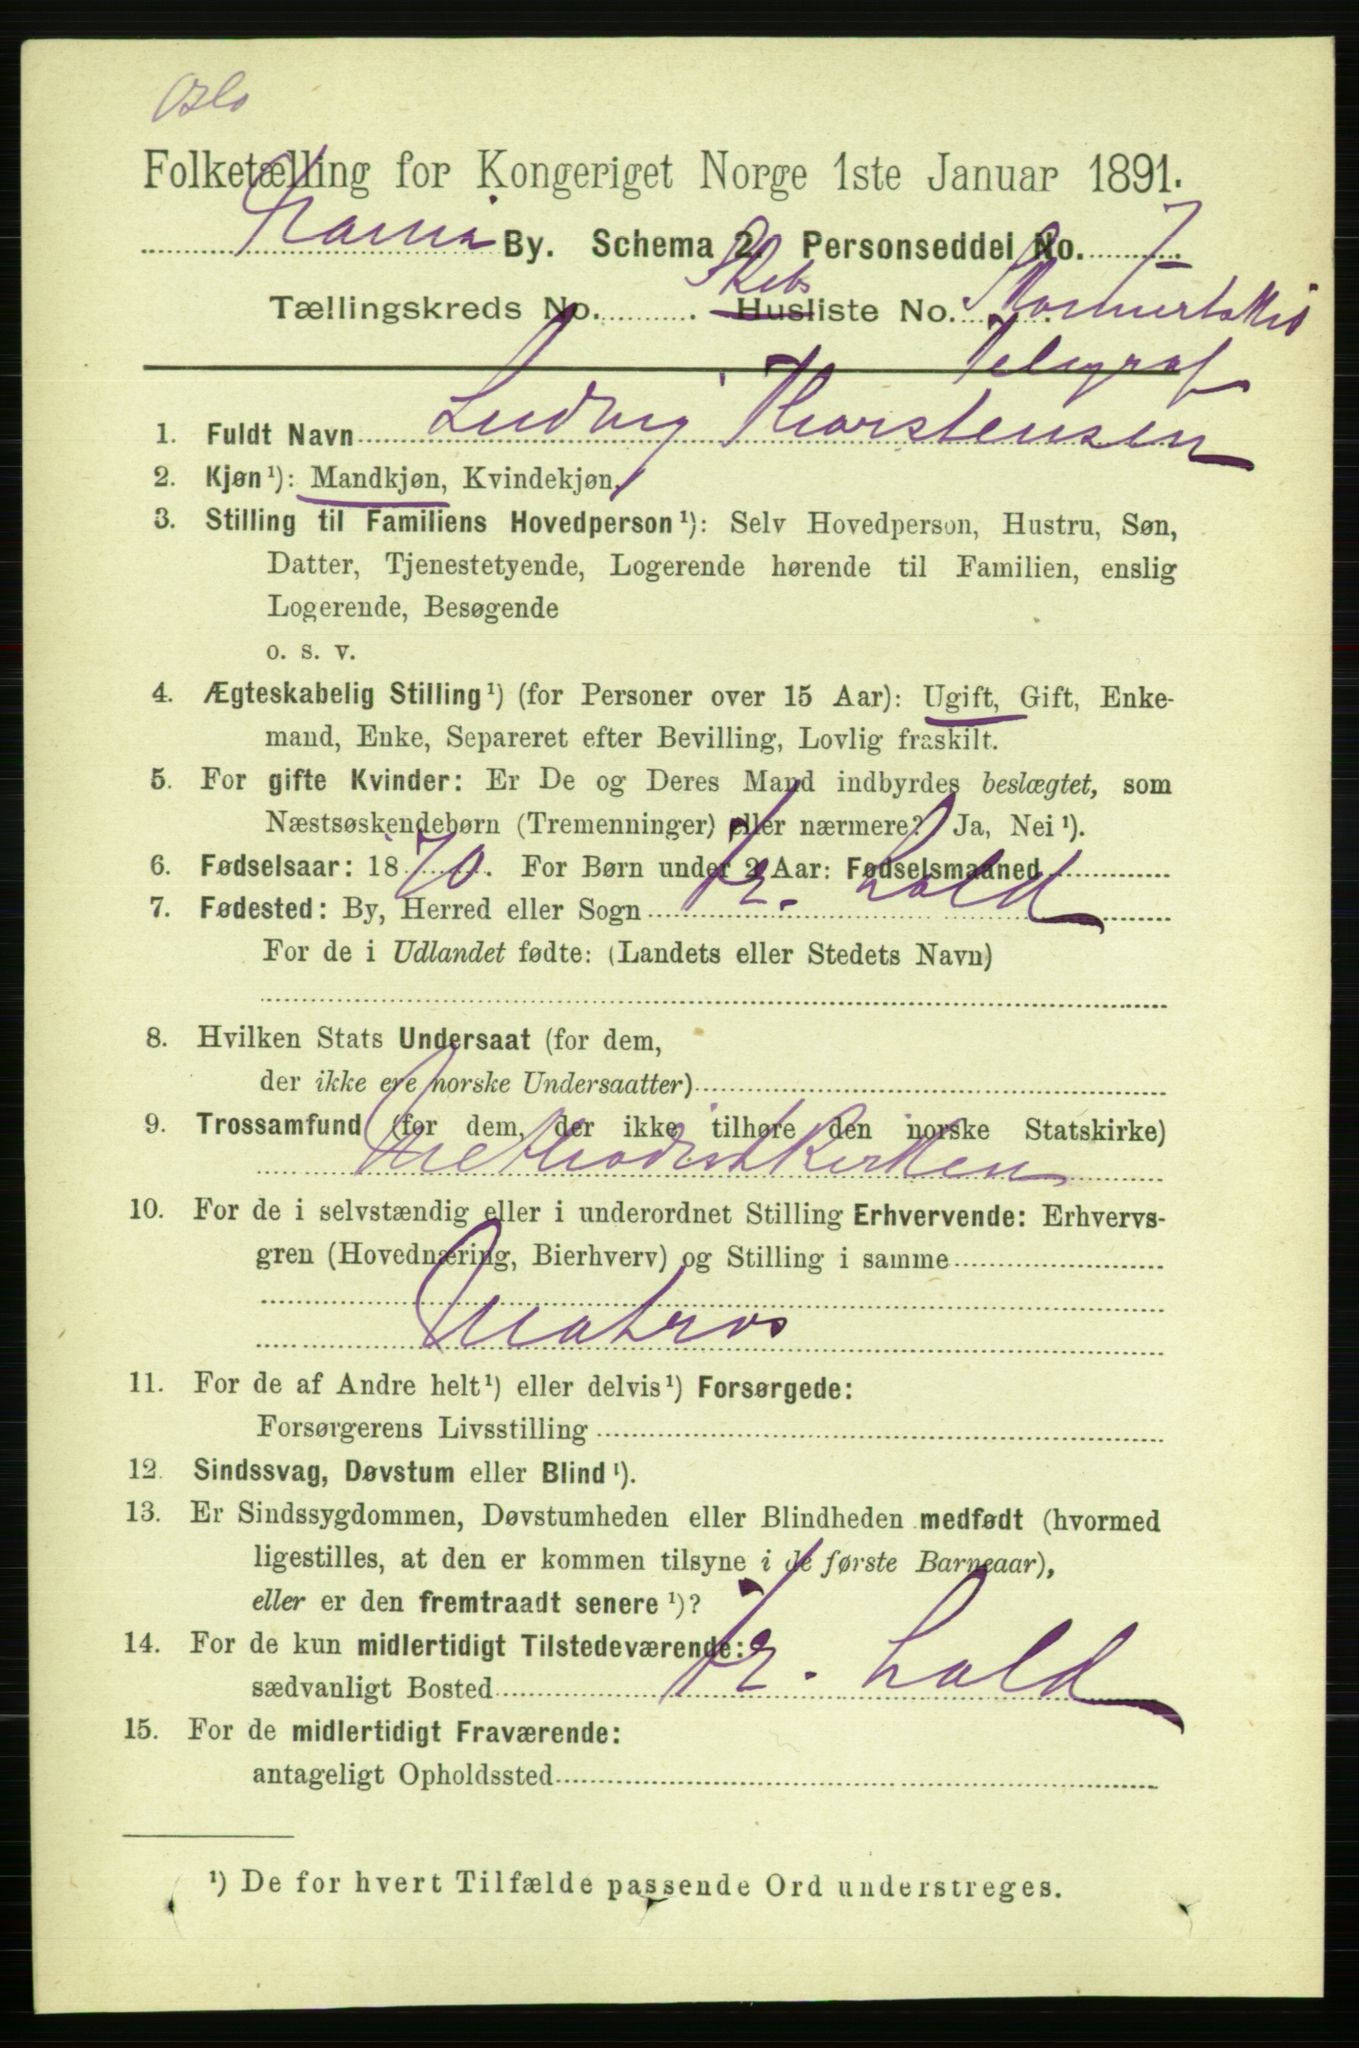 Oslo
Folketælling for Kongeriget Norge 1ste Januar 1891.
By. Schema 2. Personseddel No. 7.
Skibs
Tællingskreds No. ........... . Husliste No.
Telegraf
1. Fuldt Navn Ludvig Thorstensen
2. Kjøn ¹): Mandkjøn, Kvindekjøn.
3. Stilling til Familiens Hovedperson ¹): Selv Hovedperson, Hustru, Søn,
Datter, Tjenestetyende, Logerende hørende til Familien, enslig
Logerende, Besøgende
o. s. v.
4. Ægteskabelig Stilling ¹) (for Personer over 15 Aar): Ugift, Gift, Enke-
mand, Enke, Separeret efter Bevilling, Lovlig fraskilt.
5. For gifte Kvinder: Er De og Deres Mand indbyrdes beslægtet, som
Næstsøskendebørn (Tremenninger) eller nærmere? Ja, Nei ¹).
6. Fødselsaar: 1870. For Børn under 2 Aar: Fødselsmaaned
7. Fødested: By, Herred eller Sogn Fr. hald
For de i Udlandet fødte: (Landets eller Stedets Navn)
8. Hvilken Stats Undersaat (for dem,
der ikke ere norske Undersaatter)
9. Trossamfund (for dem, der ikke tilhøre den norske Statskirke)
Methodistkirken
10. For de i selvstændig eller i underordnet Stilling Erhvervende: Erhvervs-
gren (Hovednæring, Bierhverv) og Stilling i samme
Matros
11. For de af Andre helt ¹) eller delvis ¹) Forsørgede:
Forsørgerens Livsstilling
12. Sindssvag, Døvstum eller Blind ¹).
13. Er Sindssygdommen, Døvstumheden eller Blindheden medfødt (hvormed
ligestilles, at den er kommen tilsyne i de første Barneaar),
eller er den fremtraadt senere ¹)?
14. For de kun midlertidigt Tilstedeværende:
sædvanligt Bosted Fr. hald
15. For de midlertidigt Fraværende:
antageligt Opholdssted
¹) De for hvert Tilfælde passende Ord understreges.